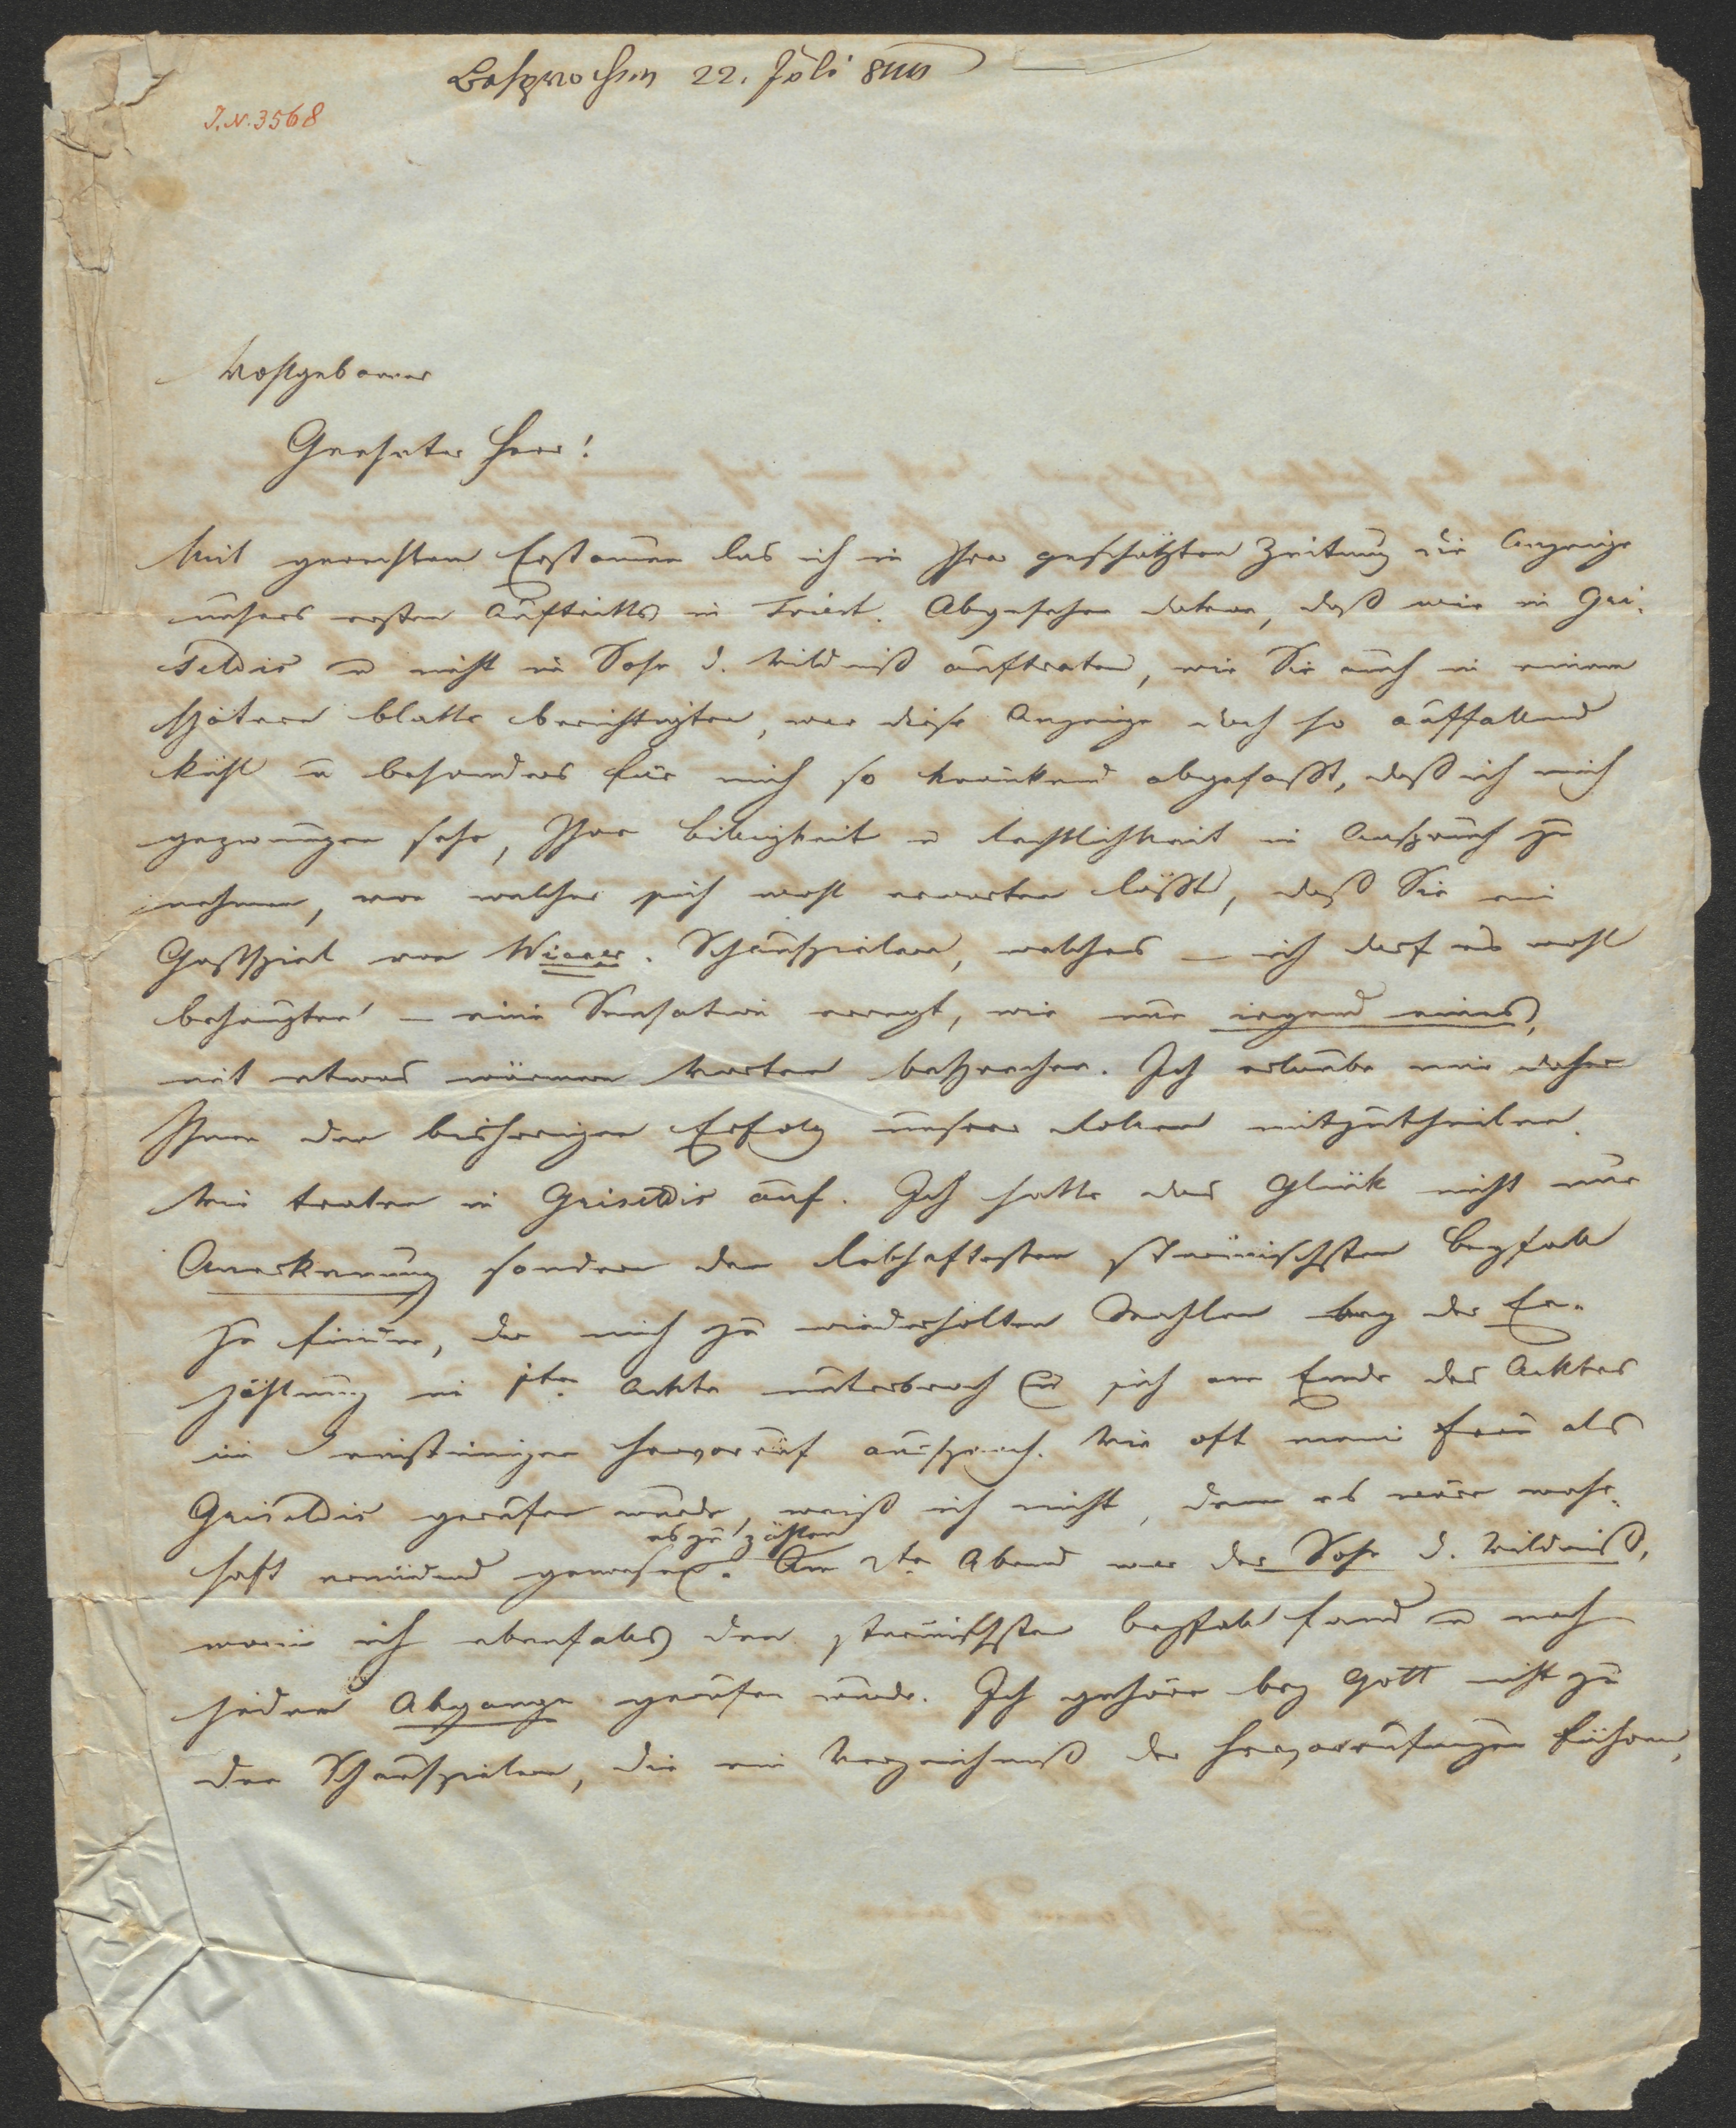 Besprochen 22. Juli 844
I.N. 3568
Wohlgeborner
Geehrter Herr!
Mit gerechtem Erstaunen las ich in Ihrer geschätzten Zeitung die Anzeige
unsers ersten Auftritts in Triest. Abgesehen davon, daß wir in Gri-
seldis u nicht in Sohn d. Wildniß auftraten, wie Sie auch in einem
spätern Blatte berichtigten, war diese Anzeige doch so auffallend
kühl u besonders für mich so kränkend abgefaßt, daß ich mich
gezwungen sehe, Ihre Billigkeit u Rechtlichkeit in Anspruch zu
nehmen, von welcher sich wohl erwarten läßt, daß Sie ein
Gastspiel von Wiener. Schauspielern, welches – ich darf es wohl
behaupten – eine Sensation erregt, wie nur irgend eines,
mit etwas wärmern Worten besprechen. Ich erlaube mir daher
Ihnen den bisherigen Erfolg unserer Rollen mitzutheilen.
Wir traten in Griseldis auf. Ich hatte das Glück nicht nur
Anerkennung sondern den lebhaftesten stürmischsten Beyfall
zu finden, der mich zu wiederholten Mahlen bey der Er-
zählung im 1ten Ackte unterbrach u sich am Ende des Acktes
im einstimigen Hervorruf aussprach. Wie oft meine Frau als
Griseldis gerufen wurde, weiß ich nicht, denn es wäre wahr-
haft ermüdend gewesen es zu zählen. Am 2ten Abend war der Sohn d. Wildniß,
worin ich ebenfalls den stürmischsten Beyfall fand u nach
jedem Abgange gerufen wurde. Ich gehöre bey Gott nicht zu
den Schauspielern, die ein Verzeichniß der Hervorrufungen führen,